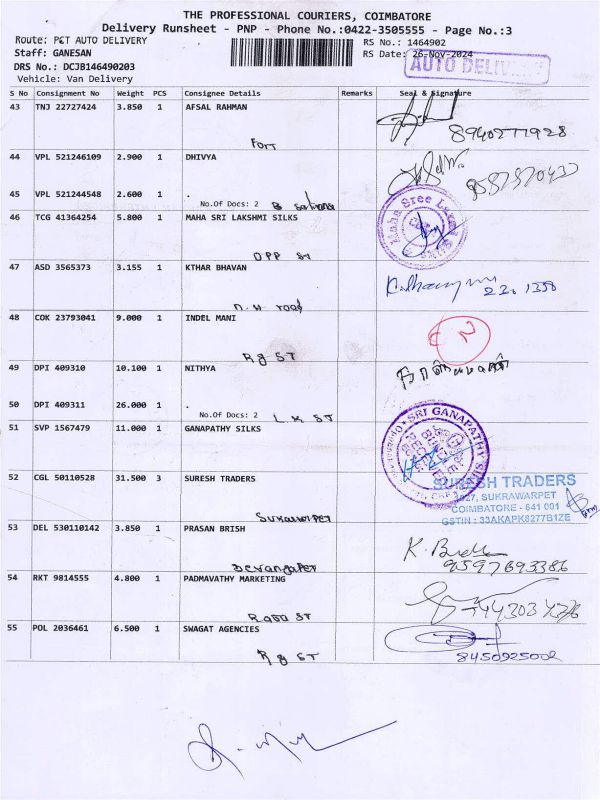 THE PROFESSIONAL COURIERS, COIMBATORE
Delivery Runsheet - PNP - Phone No.:0422-3505555 - Page No.:3
Route: P&T AUTO DELIVERY
RS No.: 1464902
Staff: GANESAN
RS Date: 26-Nov-2024
AUTO DELIVERY
DRS No.: DCJB146490203
Vehicle: Van Delivery
S No Consignment No Weight PCS Consignee Details Remarks Seal & Signature
43 TNJ 22727424 3.850 1 AFSAL RAHMAN
Fort 8940277928
44 VPL 521246109 2.900 1 DHIVYA
45 VPL 521244548 2.600 1 .
No.Of Docs: 2
46 TCG 41364254 5.800 1 MAHA SRI LAKSHMI SILKS
Maha Sree
OPP
47 ASD 3565373 3.155 1 KTHAR BHAVAN
48 COK 23793041 9.000 1 INDEL MANI
Rg ST
49 DPI 409310 10.100 1 NITHYA
50 DPI 409311 26.000 1 .
No.Of Docs: 2 L.K ST
51 SVP 1567479 11.000 1 GANAPATHY SILKS
SRI GANAPATHY
52 CGL 50110528 31.500 3 SURESH TRADERS
SURESH TRADERS
827, SUKRAWARPET
COIMBATORE - 641 001
GSTIN : 33AKAPK8277B1ZE
Sukrawarpet
53 DEL 530110142 3.850 1 PRASAN BRISH
Devangapet 9597693386
54 RKT 9814555 4.800 1 PADMAVATHY MARKETING
55 POL 2036461 6.500 1 SWAGAT AGENCIES
Rg ST 8450925002